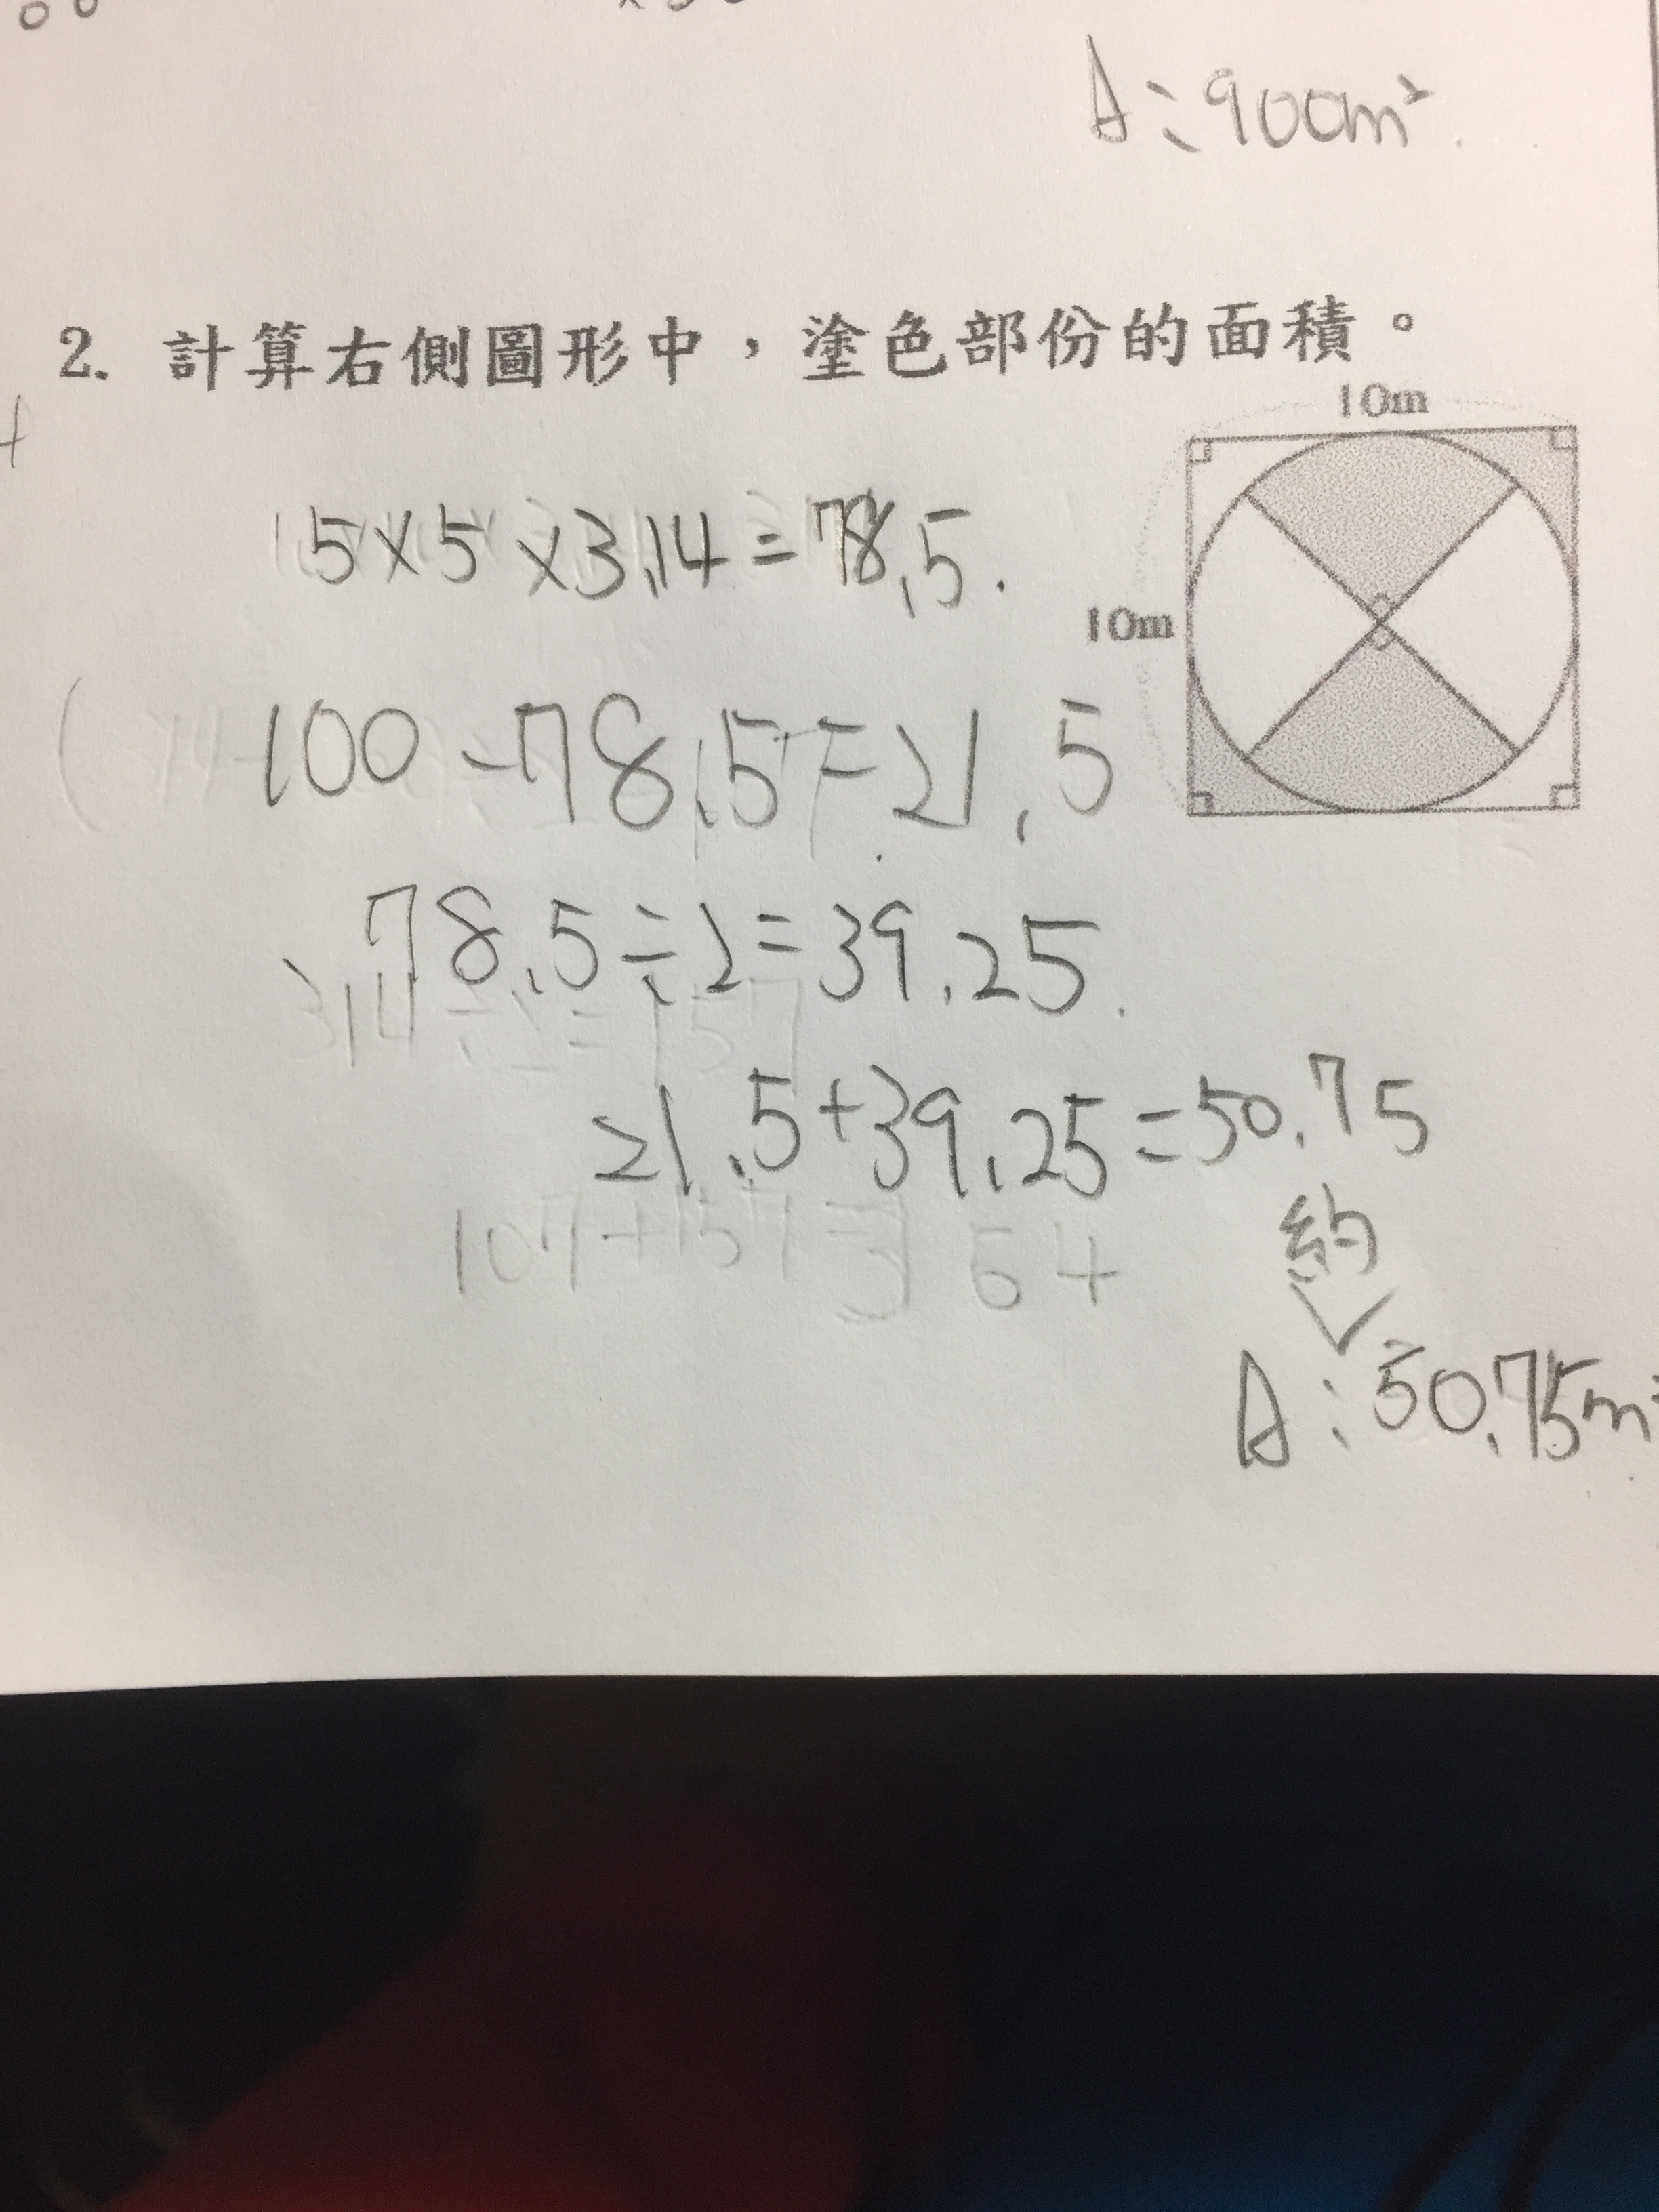 A:900m²
2. 計算右側圖形中，塗色部份的面積。
10m
5×5×3.14=78.5.
10m
100-78.5=21.5
78.5÷2=39.25.
314÷2=157
21.5+39.25=50.75
107+157=
約
A:50.75m²